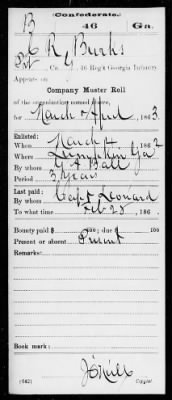 Confederate.
B 46 Ga.
C R Burks
Pvt, Co. G, 46 Reg't Georgia Infantry.
Appears on
Company Muster Roll
of the organization named above,
for March & April, 1863.
Enlisted:
When March 4, 1862
Where Lumpkin Ga
By whom G A Ball
Period 3 years
Last paid:
By whom Capt Leonard
To what time Feb 28, 186
Bounty paid $ 100; due $ 100
Present or absent Present
Remarks:
Book mark:
(642) Copyist.